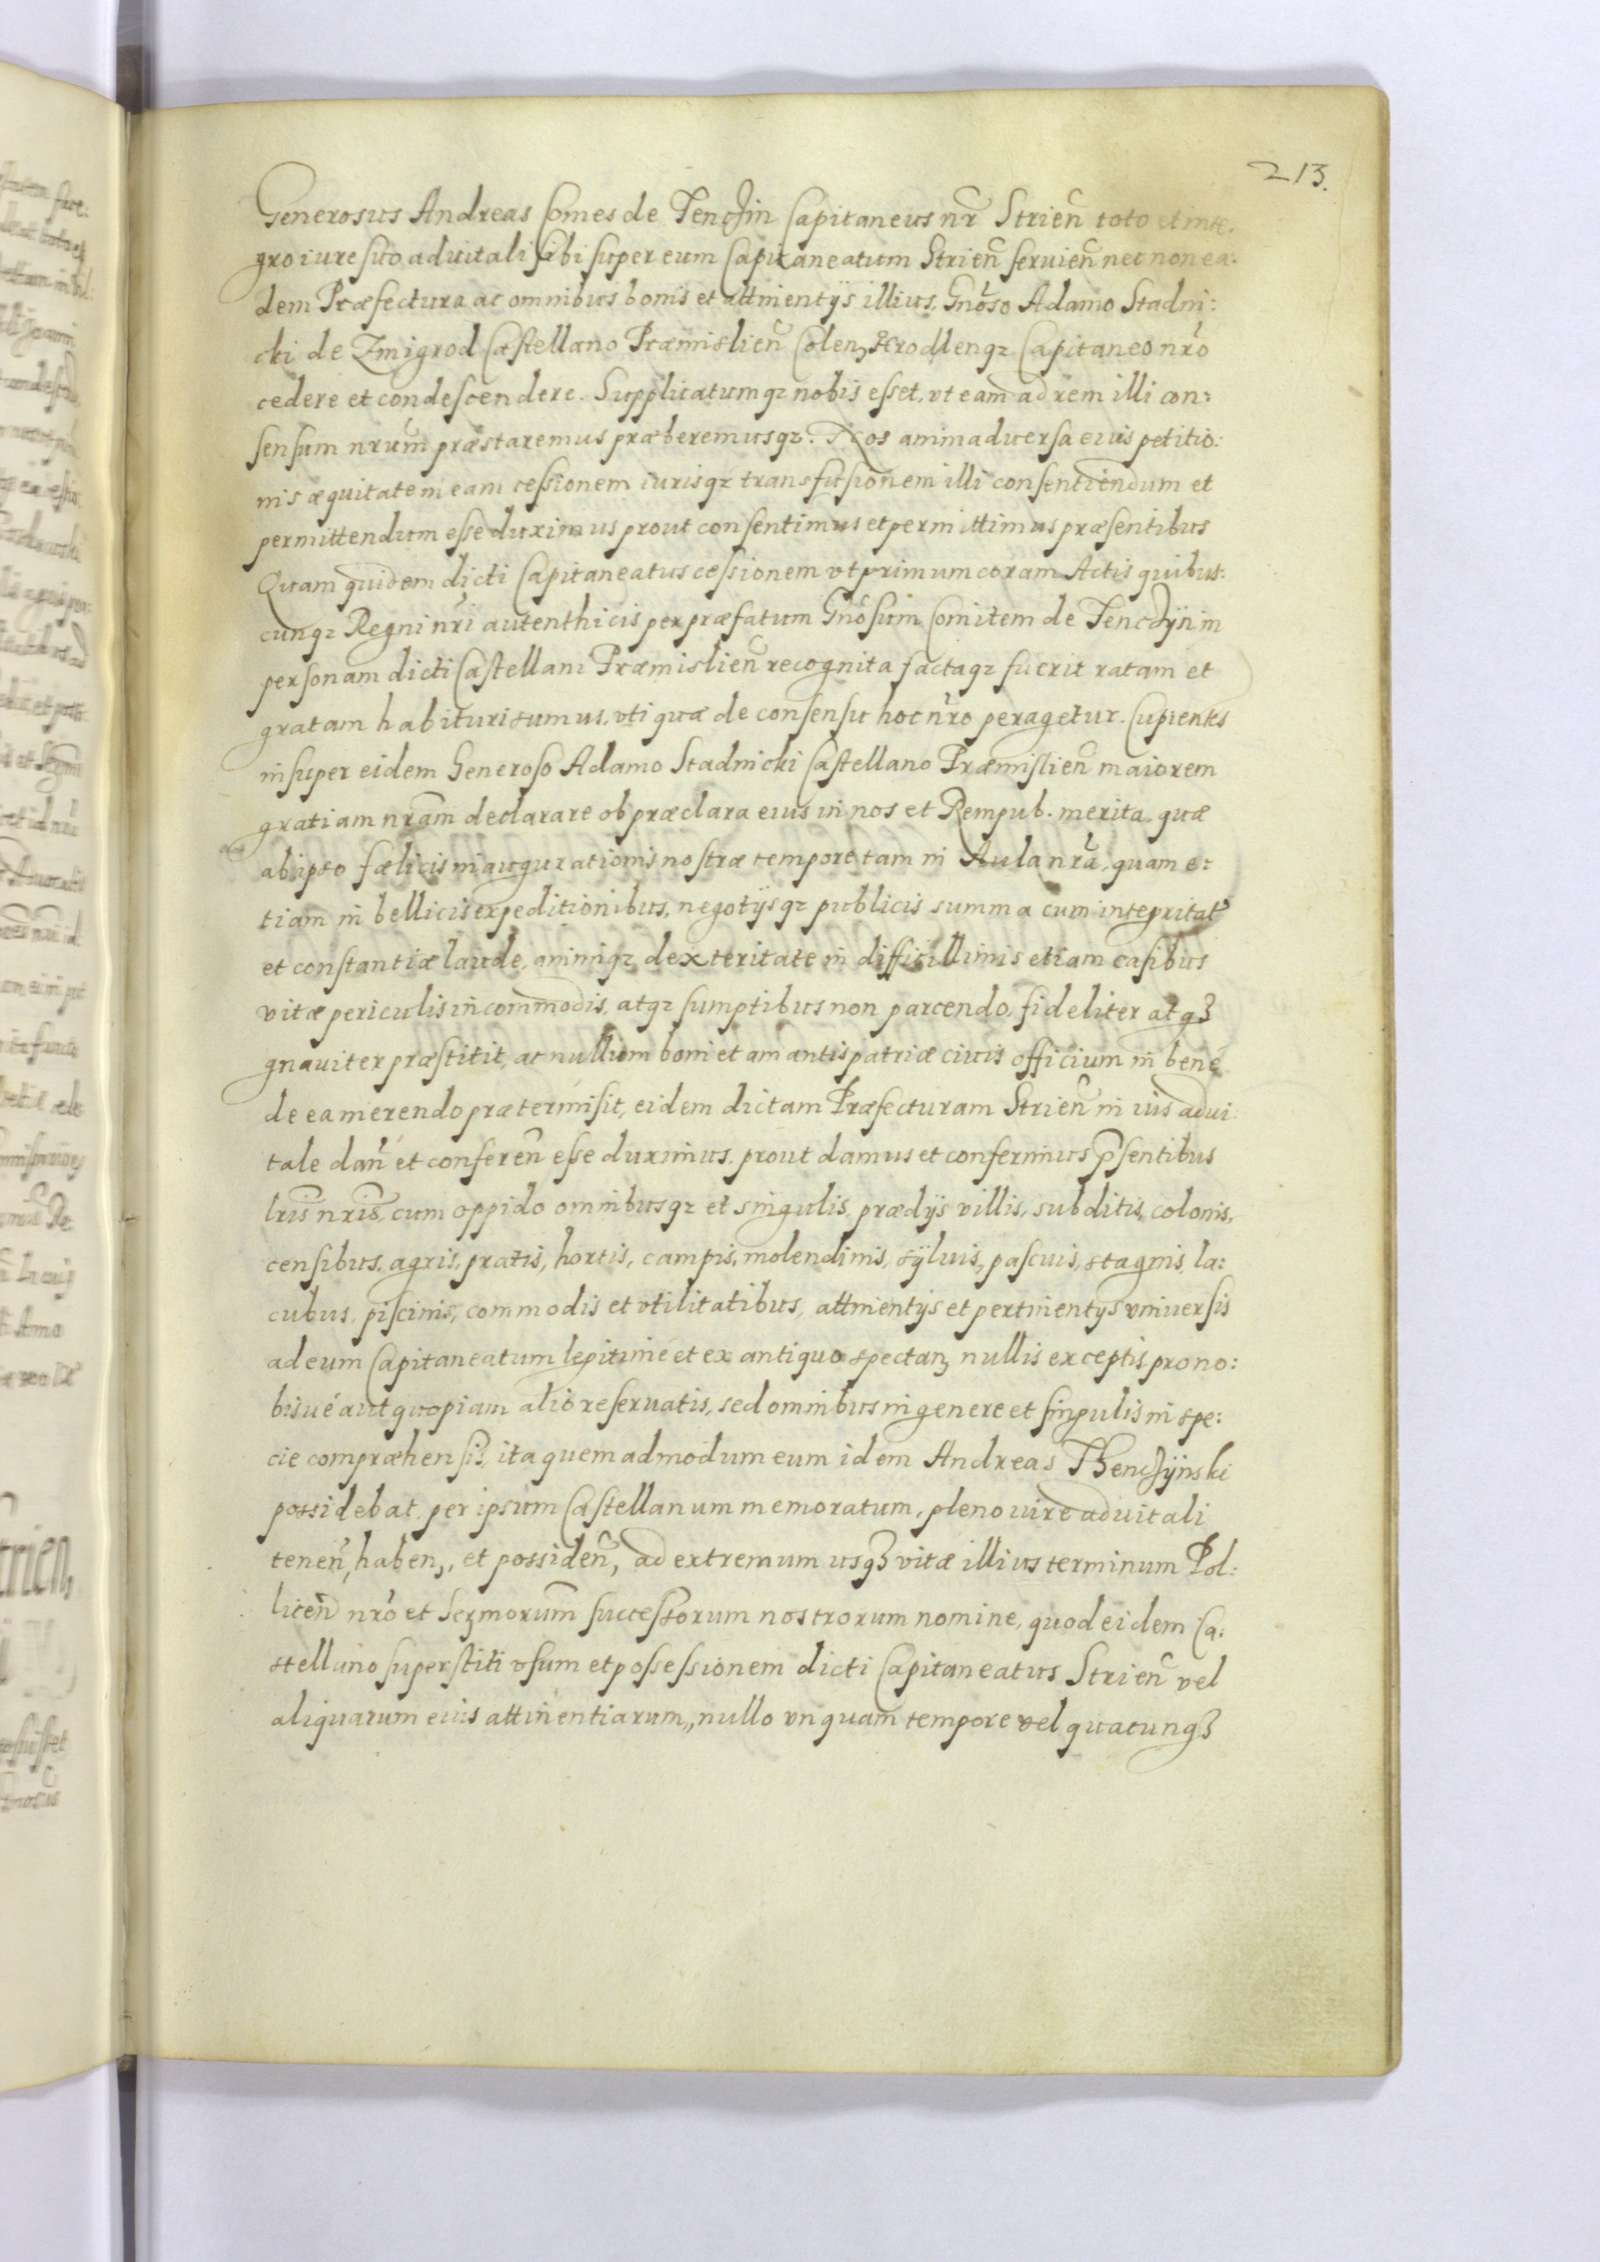 213.
Generosus Andreas Comes de Tenczin Capitaneus nr̃ Strieñ toto et inte:
gro iure suo aduitali sibi super eum Capitaneatum Strieñ seruieñ nec non ea:
dem Præfectura ac omnibus bonis et attinentijs illius, Gnõso Adamo Stadni:
cki de Zmigrod Castellano Præmislieñ Colen, Capitaneo nrõ
cedere et condescendere. Supplicatumqz nobis esset, vt eam ad rem illi con:
sensum nrũm præstaremus præberemusqz. Nos animaduersa eius petitio:
nis æquitatem eam cessionem iurisqz transfusionem illi consentiendum et
permittendum esse duximus prout consentimus et permittimus præsentibus
Quam quidem dicti Capitaneatus cessionem vt primum coram Actis quibus:
cunqz Regni nrĩ autenthicis per præfatum Gnõsum Comitem de Tenczÿn in
personam dicti Castellani Præmislieñ recognita factaqz fuerit ratam et
gratam habituri sumus, vti quæ de consensu hoc nrõ peragetur. Cupientes
insuper eidem Generoso Adamo Stadnicki Castellano Præmislieñ maiorem
gratiam nrãm declarare ob præclara eius in nos et Rempub. merita, quæ
ab ipso fælicis inaugurationis nostræ tempore tam in Aula nrã, quam e:
tiam in bellicis expeditionibus, negotÿsqz publicis summa cum integritate
et constantiæ laude, animiqz dexteritate in difficillimis etiam casibus
vitæ periculis incommodis, atqz sumptibus non parcendo, fideliter atqz
gnauiter præstitit, ac nullum boni et amantis patriæ ciuis officium in bene
de ea merendo prætermisit, eidem dictam Præfecturam Strieñ in ius adui:
tale dañ et confereñ esse duximus, prout damus et conferimus p̃sentibus
lrĩs nrĩs, cum oppido omnibusqz et singulis, prædÿs villis, subditis, colonis,
censibus, agris, pratis, hortis, campis, molendinis, sÿluis, pascuis, stagnis, la:
cubus, piscinis, commodis et vtilitatibus, attinentÿs et pertinentÿs vniuersis
ad eum Capitaneatum legitimé et ex antiquo spectan, nullis exceptis, pro no:
bisué aut quopiam alio reseruatis, sed omnibus in genere et singulis in spe:
cie compræhensis, ita quemadmodum eum idem Andreas Thenczÿnski
possidebat per ipsum Castellanum memoratum, pleno iure aduitali
teneñ, haben, et possideñ, ad extremum usqz vitæ illius terminum Pol:
liceñ nrõ et Sermorum successorum nostrorum nomine, quod eidem Ca:
stellano superstiti vsum et possessionem dicti Capitaneatus Strieñ vel
aliquarum eius attinentiarum, nullo vnquam tempore vel quacunqz